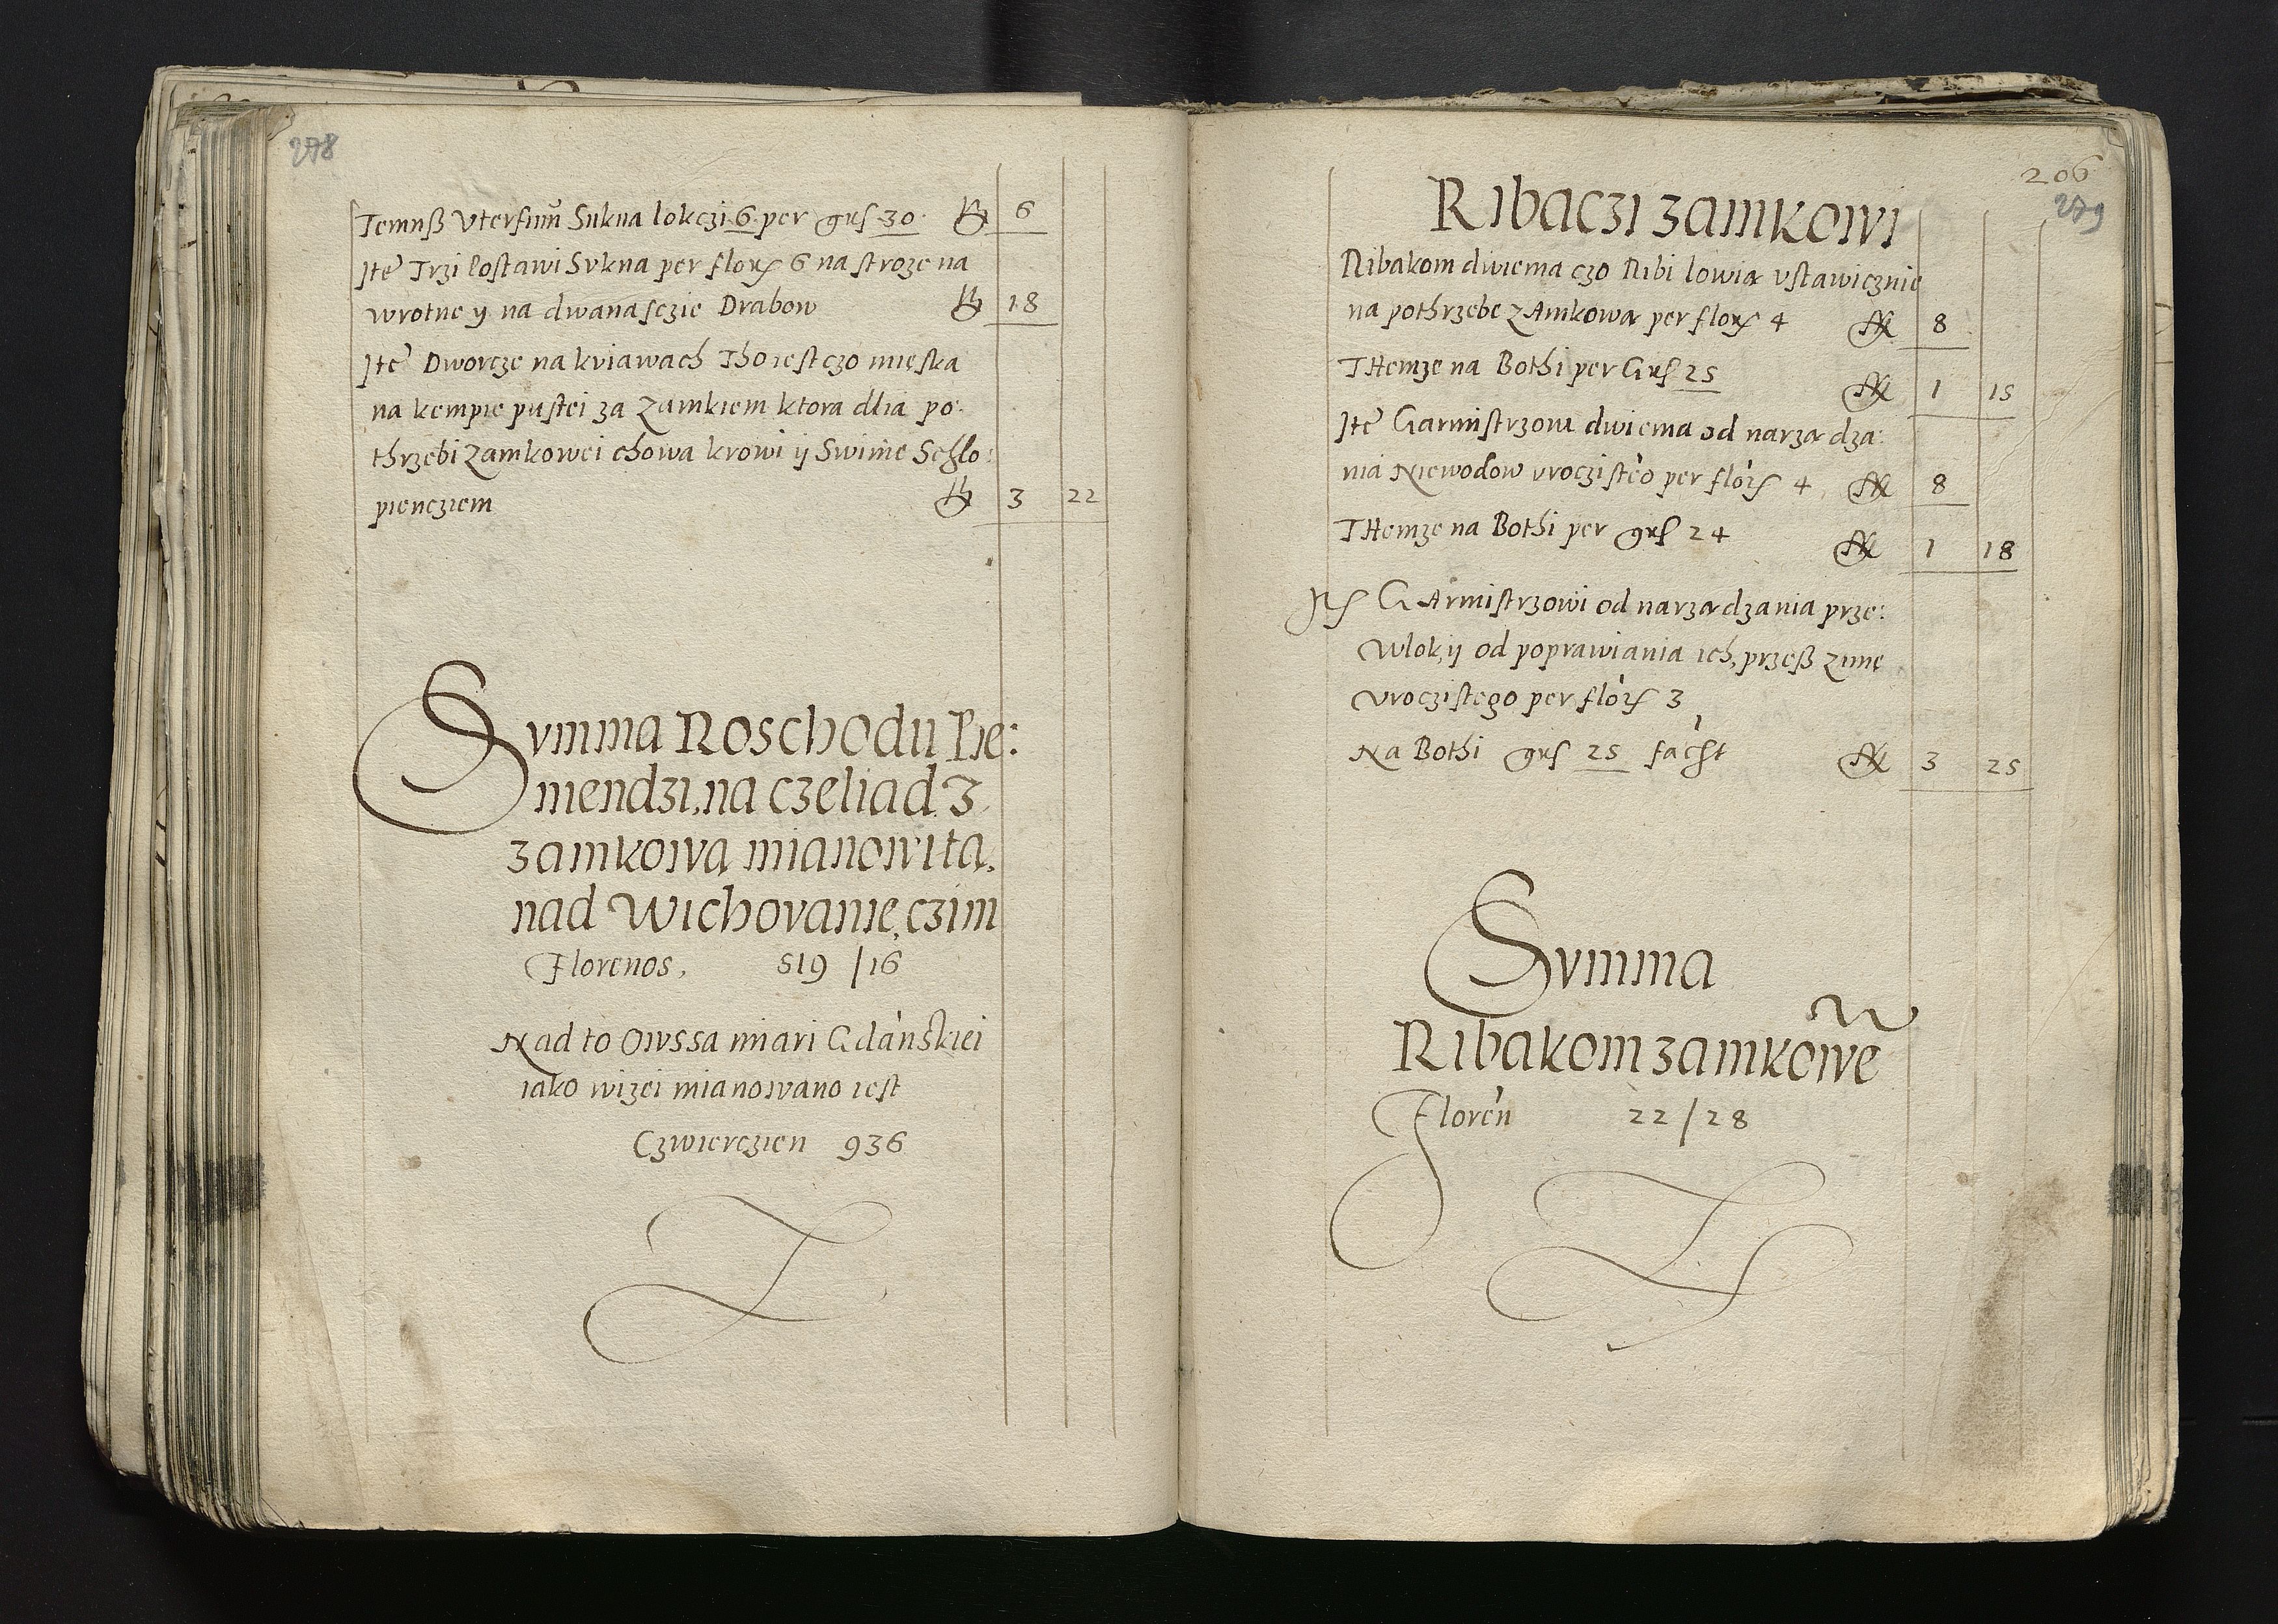 278
Temuß Vterfinn Sukna lokczi 6 per grſ 30 fl 6
Ite Trzi Postawi Sukna per florſ 6 na stroze na
wrotne y na dwanasczie Drabow fl 18
Ite Dworcze na kviawach Tho iest czo mięska
na kempie pustei za zamkiem ktora dlia po:
thrzebi zamkowei chowa krowi ij Swinie Schlo:
pienczięm fl 3 22
Svmma Roschodu Pie:
niendzi, na czeliadz
zamkowa mianowita,
nad Wichovanie, czini
Florenos, 519 / 16
Nad to Owssa miari Gdanskiei
iako wizei mianowano iest
Czwierczien 936
206
279
Ribaczi zamkowi
Ribakom dwiema czo Ribi lowia vstawicznie
na pothrzebe zAmkowa per florſ 4 fl 8
THemze na Bothi per Grſ 25 fl 1 15
Ite Garnistrzom dwiema od narza dza:
nia Niewodow vroczisteo per florſ 4 fl 8
THemze na Bothi per grſ 24 fl 1 18
GArnistrzowi od narzadzania prze:
wlok, ij od poprawiania ich, przeß zime
vroczistego per florſ 3
Na Bothi grſ 25 facht fl 3 25
Svmma
Ribakom zamkowe
Floren 22 / 28